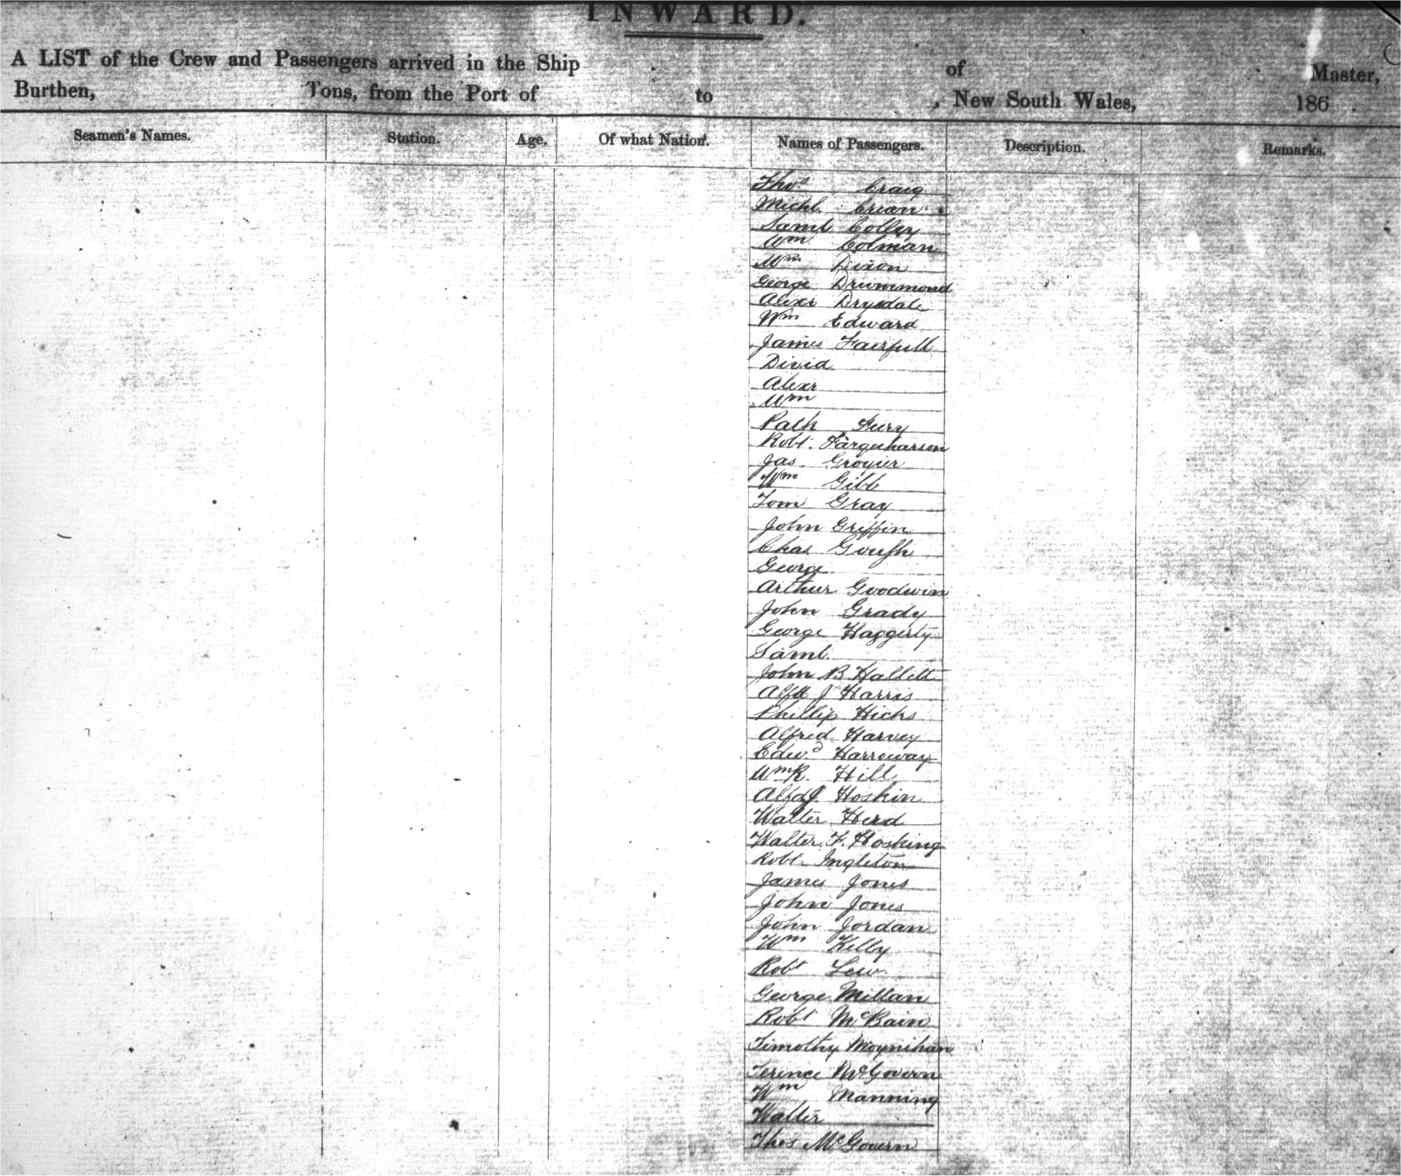 INWARD.
A LIST of the Crew and Passengers arrived in the Ship of Master,
Burthen, Tons, from the Port of to , New South Wales, 186 .
Seamen's Names. Station. Age. Of what Nation. Names of Passengers. Description. Remarks.
Thos Craig
Michl Crean
Saml Colley
Wm Colman
Wm Dixon
George Drummond
Alexr Drysdale
Wm Edward
James Fairfull
David
Alexr
Wm
Path Fury
Robt. Farquharson
Jas Grozier
Wm Gibb
Tom Gray
John Griffin
Chas Gough
George
Arthur Goodwin
John Grady
George Haggerty
Saml
John B Hallett
Alfd J Harris
Phillip Hicks
Alfred Harvey
Edwd Harreway
Wm R. Hill
Alfd J. Hoskin
Walter Herd
Walter F. Hosking
Robt Ingleton
James Jones
John Jones
John Jordan
Wm Kelly
Robt Lew
George Millan
Robt McBain
Timothy Moynihan
Terence McGovern
Wm Manning
Walter
Thos McGovern